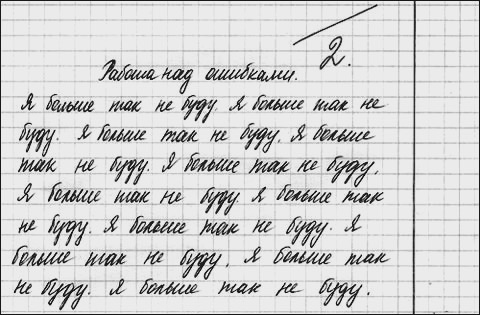 2.
Работа над ошибками.
Я больше так не буду. Я больше так не
буду. Я больше так не буду. Я больше
так не буду. Я больше так не буду.
Я больше так не буду Я больше так
не буду. Я больше так не буду. Я
больше так не буду. Я больше так
не буду. Я больше так не буду.